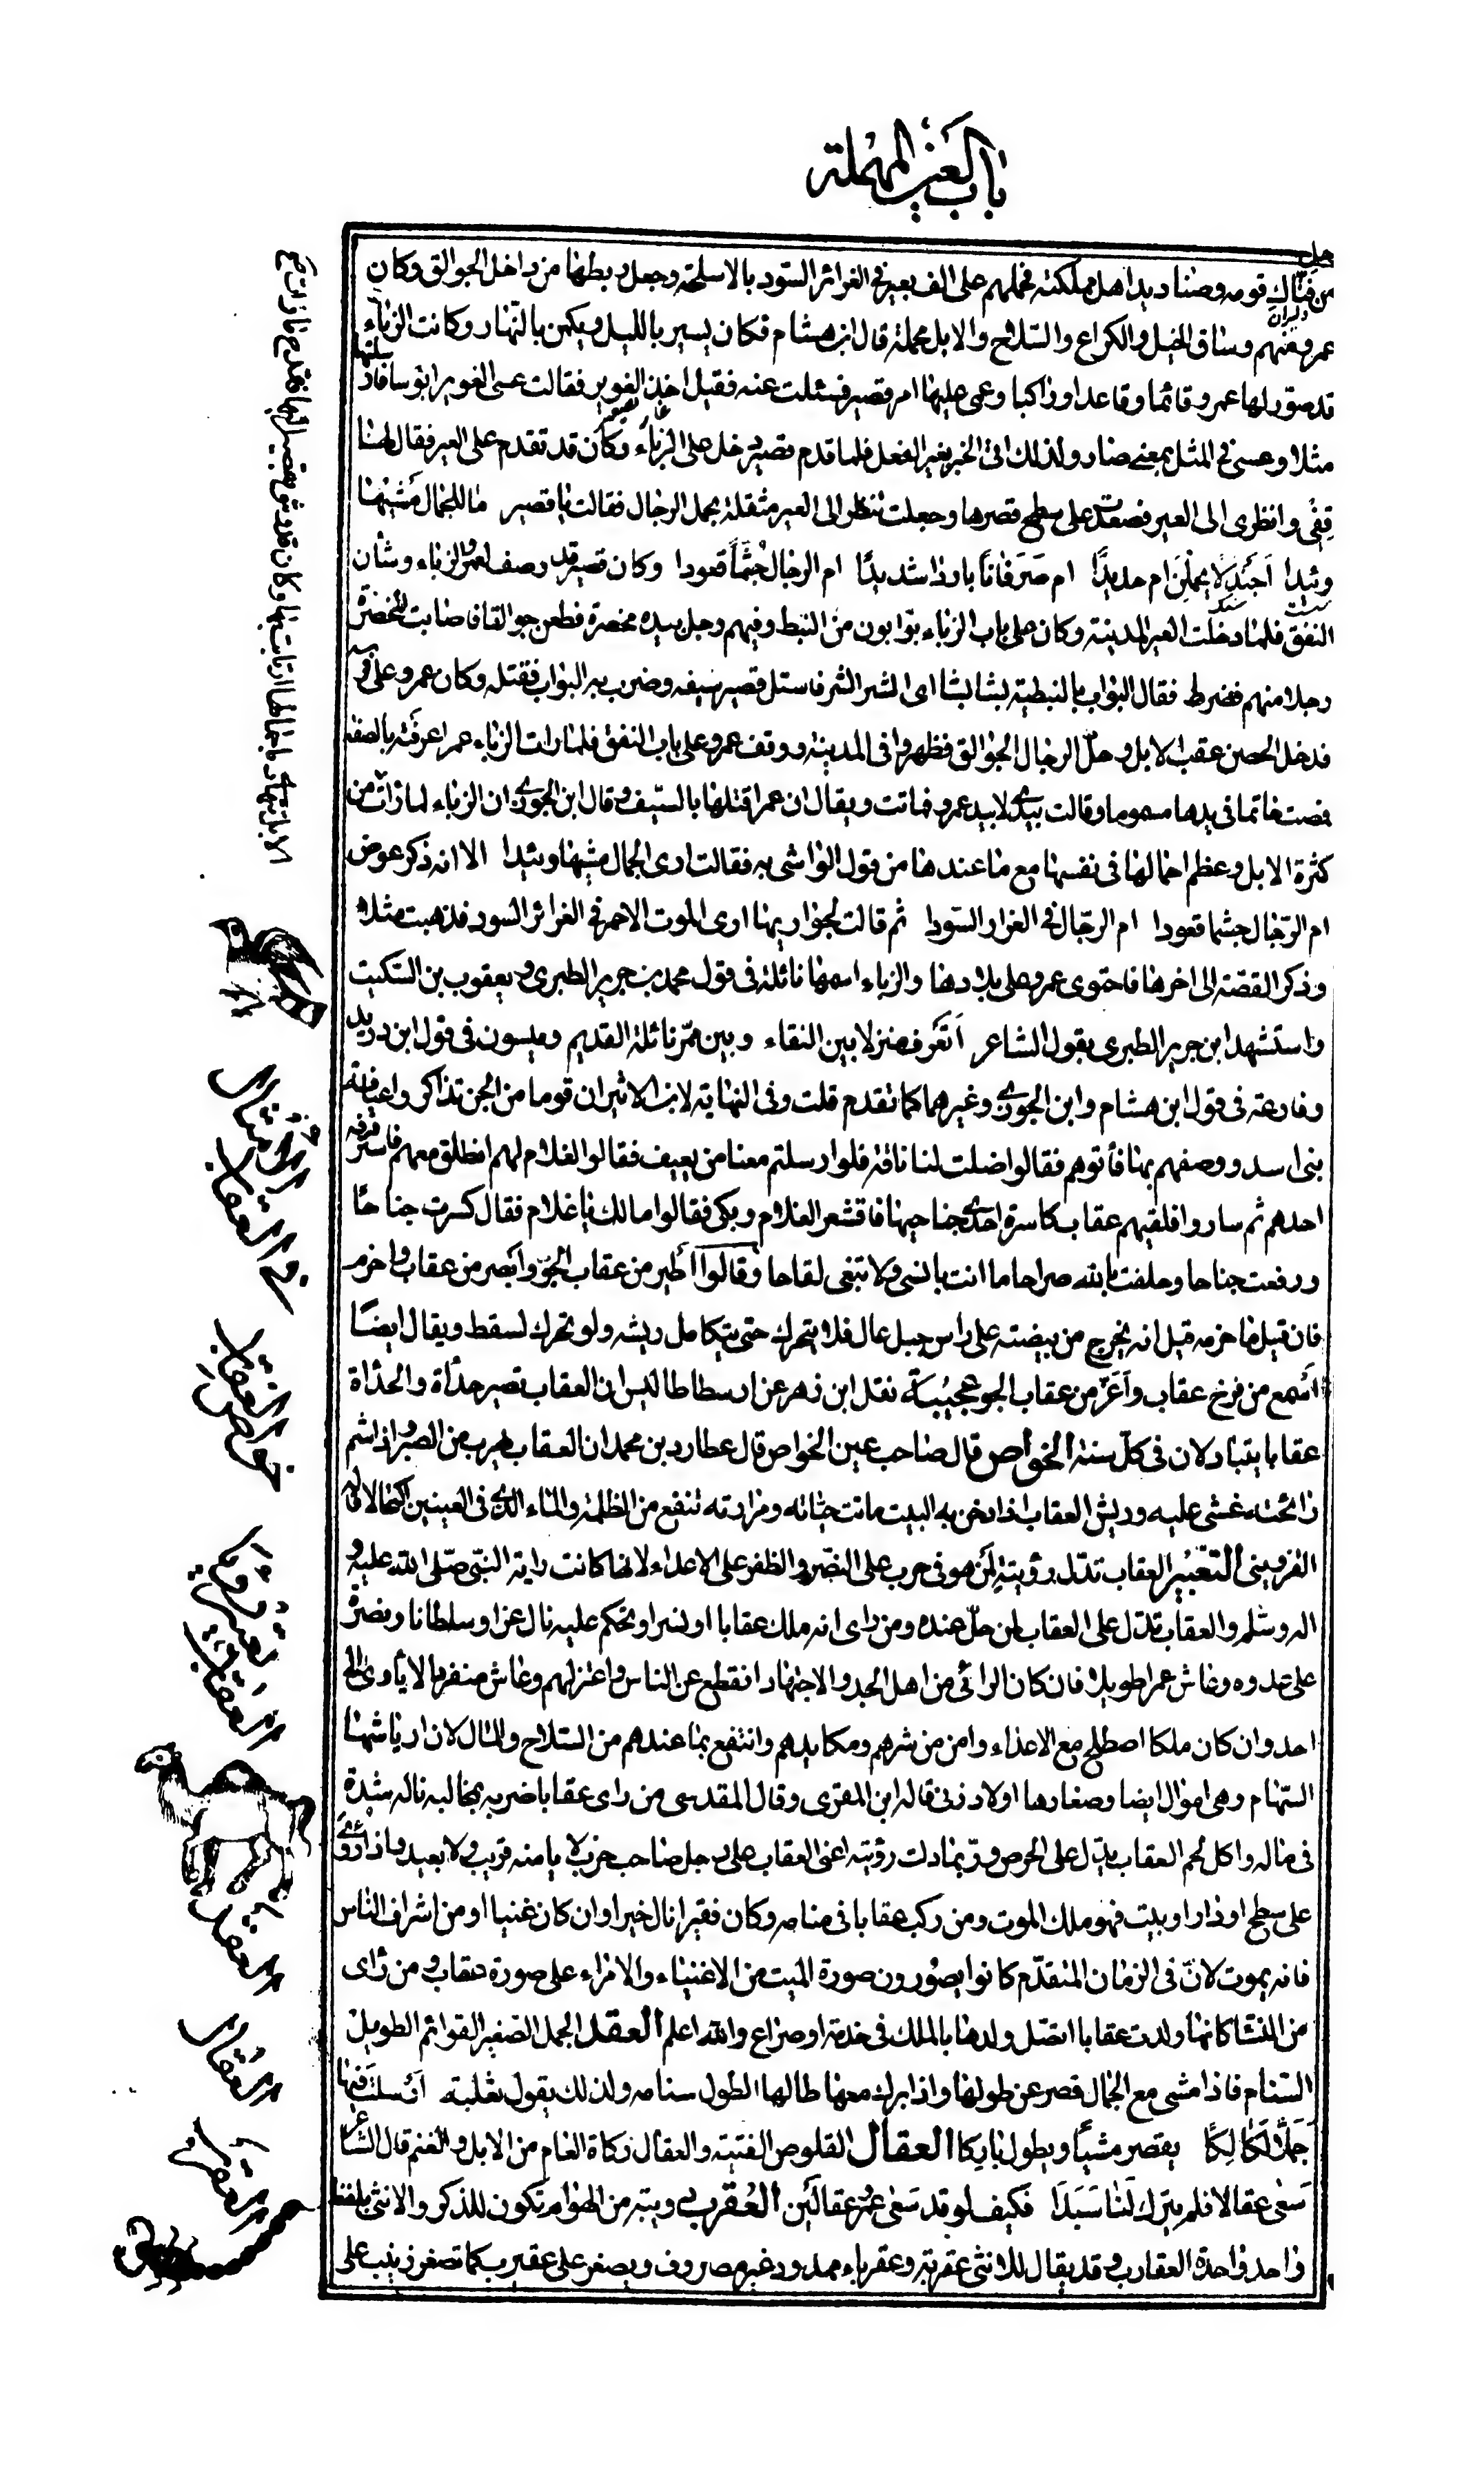 باب العين المهملة
من فتاك قومه وصناديد اهل مملكته فحملهم على الف بعير في الغرائر السود بالاسلحة وجعل ربطها من داخل الجوالق وكان
عمرو فيهم وساق الخيل والكراع والسلاح والابل محملة قال ابن هشام فكان يسير بالليل ويكمن بالنهار وكانت الزباء
قد صور لها عمرو قائما وقاعدا وراكبا وعمى عليها امر قصير فسئلت عنه فقيل اخذ الغوير فقالت عسى الغوير ابؤسا فارسلتها
مثلا وعسى في المثل بمعنى صار ولذلك اتى الخبر بغير الفعل فلما قدم قصير دخل على الزباء وكان قد تقدم على العير فقال لها
قفى وانظرى الى العير فصعدت على سطح قصرها وجعلت تنظر الى العير مثقلة بحمل الرجال فقالت يا قصير ما للجمال مشيها
وئيدا أجندلا يحملن ام حديدا ام صرفانا باردا شديدا ام الرجال جثما قعودا وكان قصير قد وصف لعمرو الزباء وشأن
النفق فلما دخلت العير المدينة وكان على باب الزباء بوابون من النبط وفيهم رجل بيده مخصرة فطعن جوالقا فاصابت المخصرة
رجلا منهم فضرط فقال البواب بالنبطية بشا بشا اى الشر الشر فاستل قصير سيفه وضرب به البواب فقتله وكان عمرو على فرسه
فدخل الحصن عقب الابل وحل الرجال الجوالق فظهروا فى المدينة ووقف عمرو على باب النفق فلما رات الزباء عمرا عرفته بالصفة
فمصت خاتما فى يدها مسموما وقالت بيدى لا بيد عمرو فماتت ويقال ان عمرا قتلها بالسيف وقال ابن الجوزى ان الزباء لما رات من
كثرة الابل وعظم احمالها فى نفسها مع ما عندها من قول الواشى به فقالت ارى الجمال مشيها وئيدا الا انه ذكر عوض
ام الرجال جثما قعودا ام الرجال فى الغرار السودا ثم قالت لجواريها ارى الموت الاحمر فى الغرائر السود فذهبت مثلا
وذكر القصة الى اخرها فاحتوى عمرو على بلادها والزباء اسمها نائلة فى قول محمد بن جرير الطبرى ويعقوب بن السكيت
واستشهد ابن جرير الطبرى بقول الشاعر أتعرف منزلا بين النقاء وبين ممر نائلة القديم وميسون فى قول ابن دريد
وفارعة فى قول ابن هشام وابن الجوزى وغيرهما كما تقدم قلت وفى النهاية لابن الاثير ان قوما من الجن تذاكروا عيافة
بنى اسد ووصفهم بها فأتوهم فقالوا ضلت لنا ناقة فلو ارسلتم معنا من يعيف فقالوا لغلام لهم انطلق معهم فاستردفه
احدهم ثم ساروا فلقيهم عقاب كاسرة احدى جناحيها فاقشعر الغلام وبكى فقالوا مالك يا غلام فقال كسرت جناحا
ورفعت جناحا وحلفت بالله صراحا ما انت بانسى ولا تبغى لقاحا وقالوا أطير من عقاب الجو وأبصر من عقاب واحزم
فان قيل ما حزمه قيل انه يخرج من بيضته على راس جبل عال فلا يتحرك حتى يتكامل ريشه ولو تحرك لسقط ويقال ايضا
اسمع من فرخ عقاب وأعز من عقاب الجو عجيبة نقل ابن زهر عن ارسطاطاليس ان العقاب تصير حدأة والحدأة
عقابا يتبادلان فى كل سنة الخواص قال صاحب عين الخواص قال عطارد بن محمد ان العقاب يهرب من الصبر واذا شم
رائحته غشى عليه وريش العقاب اذا دخن به البيت ماتت حياته ومرارته تنفع من الظلمة والماء الذى فى العينين اكتحالا قاله
القزوينى التعبير العقاب تدل رؤيته لمن هو فى حرب على النصر والظفر على الاعداء لانها كانت راية النبى صلى الله عليه و
اله وسلم والعقاب تدل على العقاب لمن حل عنده ومن راى انه ملك عقابا او نسرا وتحكم عليه نال عزا وسلطانا ونصرة
على عدوه وعاش عمرا طويلا فان كان الرائى من اهل الجد والاجتهاد انقطع عن الناس واعتزلهم وعاش منفردا لا يأوى الى
احد وان كان ملكا اصطلح مع الاعداء وامن من شرهم ومكايدهم وانتفع بما عندهم من السلاح والمال لان ارياشها
السهام وهى اموال ايضا وصغارها اولاد زنى قاله ابن المقرى وقال المقدسى من راى عقابا ضربه بمخالبه ناله شدة
فى ماله واكل لحم العقاب يدل على الحرص وربما دلت رؤيته اعنى العقاب على رجل صاحب حرب لا يامنه قريب ولا بعيد واذا رؤى
على سطح او دار او بيت فهو ملك الموت ومن ركب عقابا فى منامه وكان فقيرا نال خيرا وان كان غنيا او من اشراف الناس
فانه يموت لان فى الزمان المتقدم كانوا يصورون صورة الميت من الاغنياء والامراء على صورة عقاب ومن راى
من النسا كانها ولدت عقابا اتصل ولدها بالملك فى خدمة او صراع والله اعلم العقد الجمل القصير القوائم الطويل
السنام فاذا مشى مع الجمال قصر عن طولها واذا برك معها طالها لطول سنامه ولذلك يقول ثعلبة أرسلت فيها
جملا لكالكا يقصر مشيا ويطول باركا العقال القلوص الفتية والعقال زكاة العام من الابل والغنم قال الشاعر
سعى عقالا فلم يترك لنا سبدا فكيف لو قد سعى عمرو عقالين العقرب دويبة من الهوام تكون للذكر والانثى بلفظ
واحد واحدة العقارب وقد يقال للانثى عقربة وعقرباء ممدود غير مصروف ويصغر على عقيرب كما تصغر زينب على
الأمثال
فى العقاب
خواص العقاب
تعبير رؤيا العقاب
العقد
العقال
العقرب